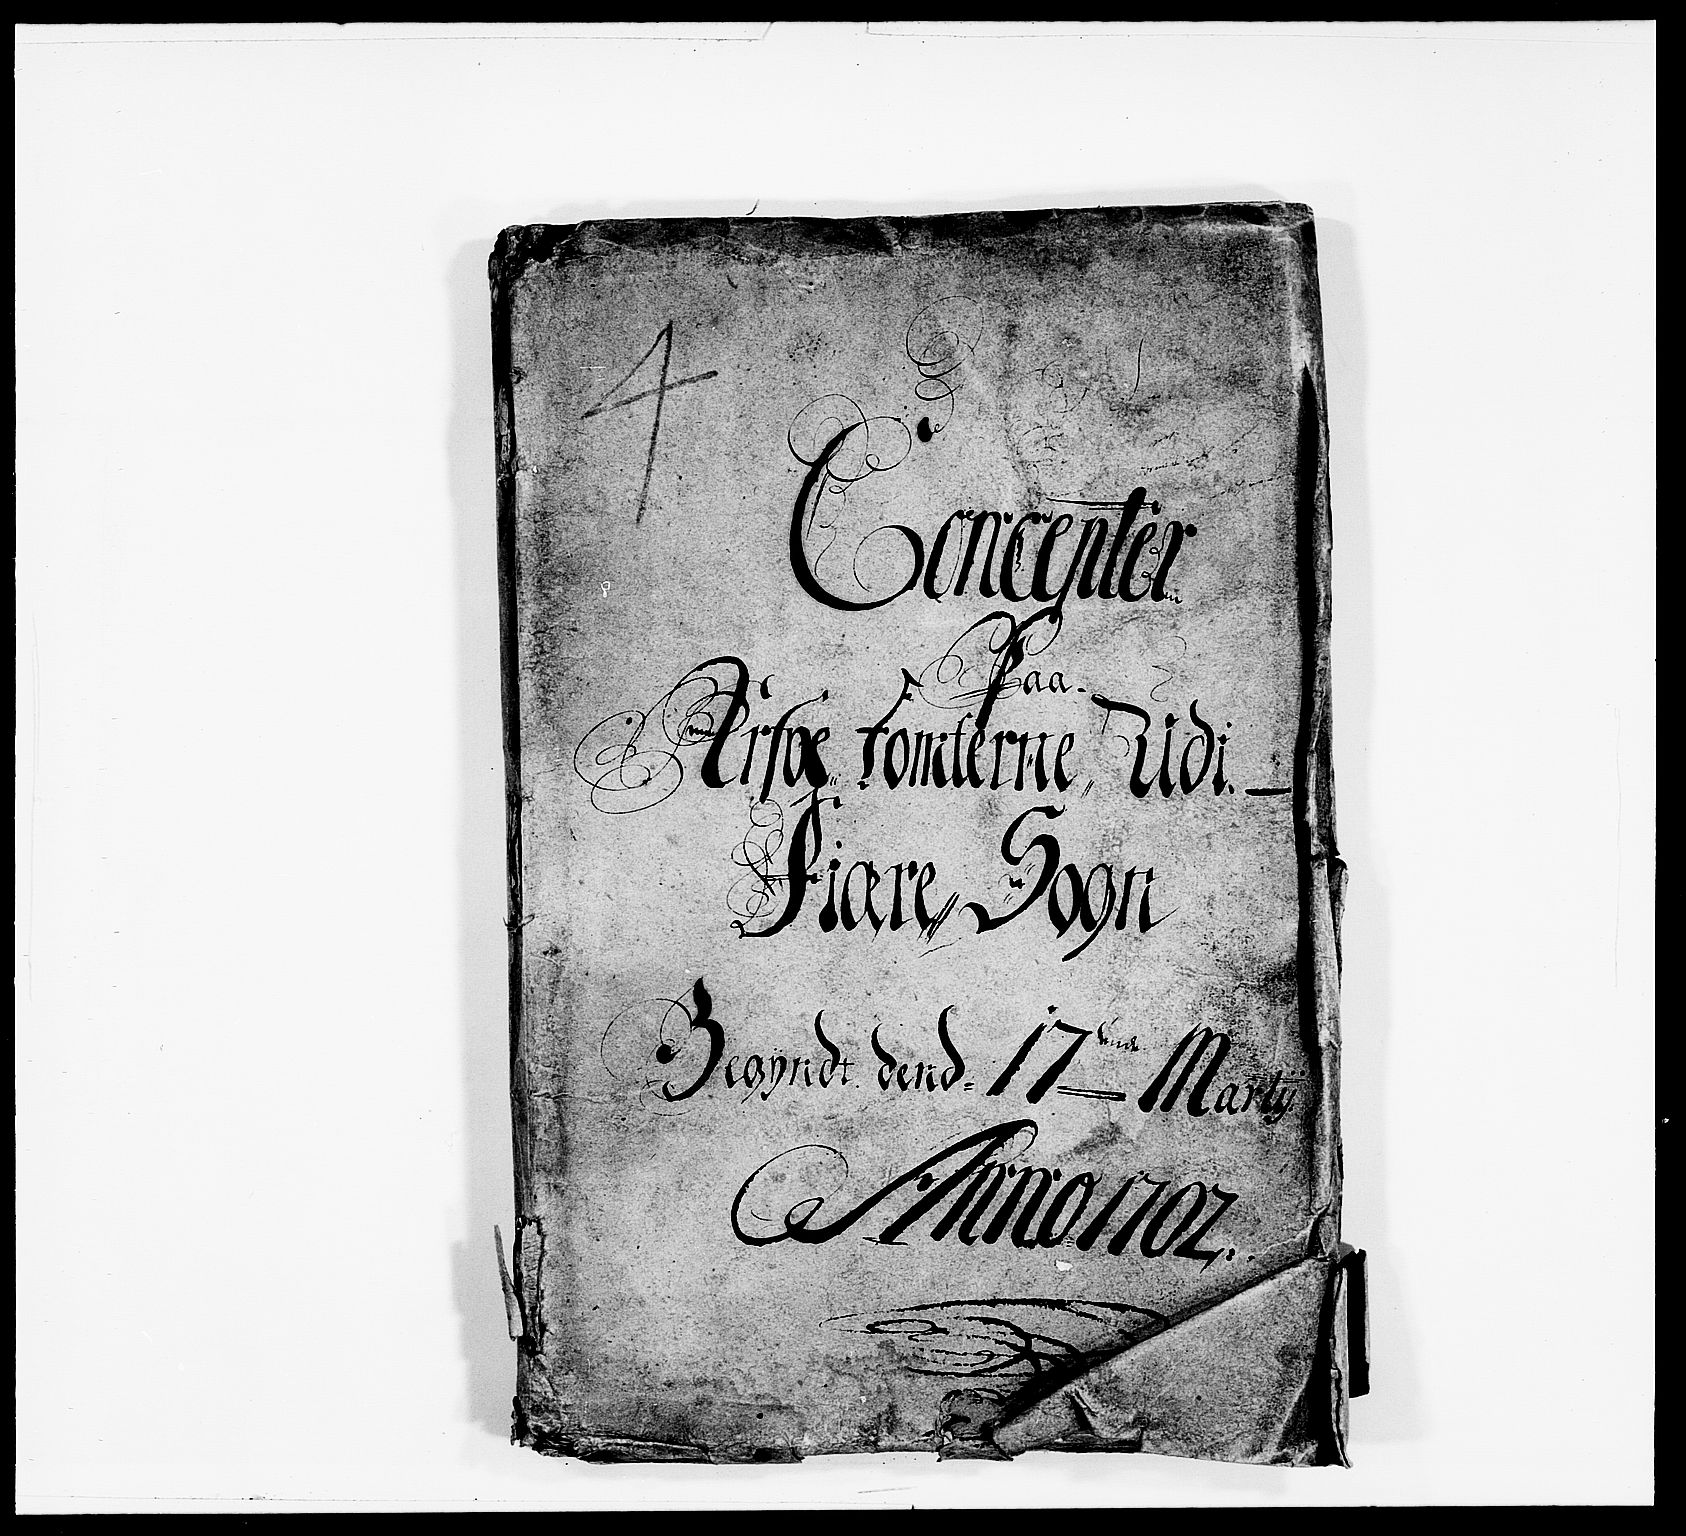 4
Concepter
Paa
Arfve Tomterne Udi
Fiære Sogn
Begyndt dend 17 Martij
Anno 1702.